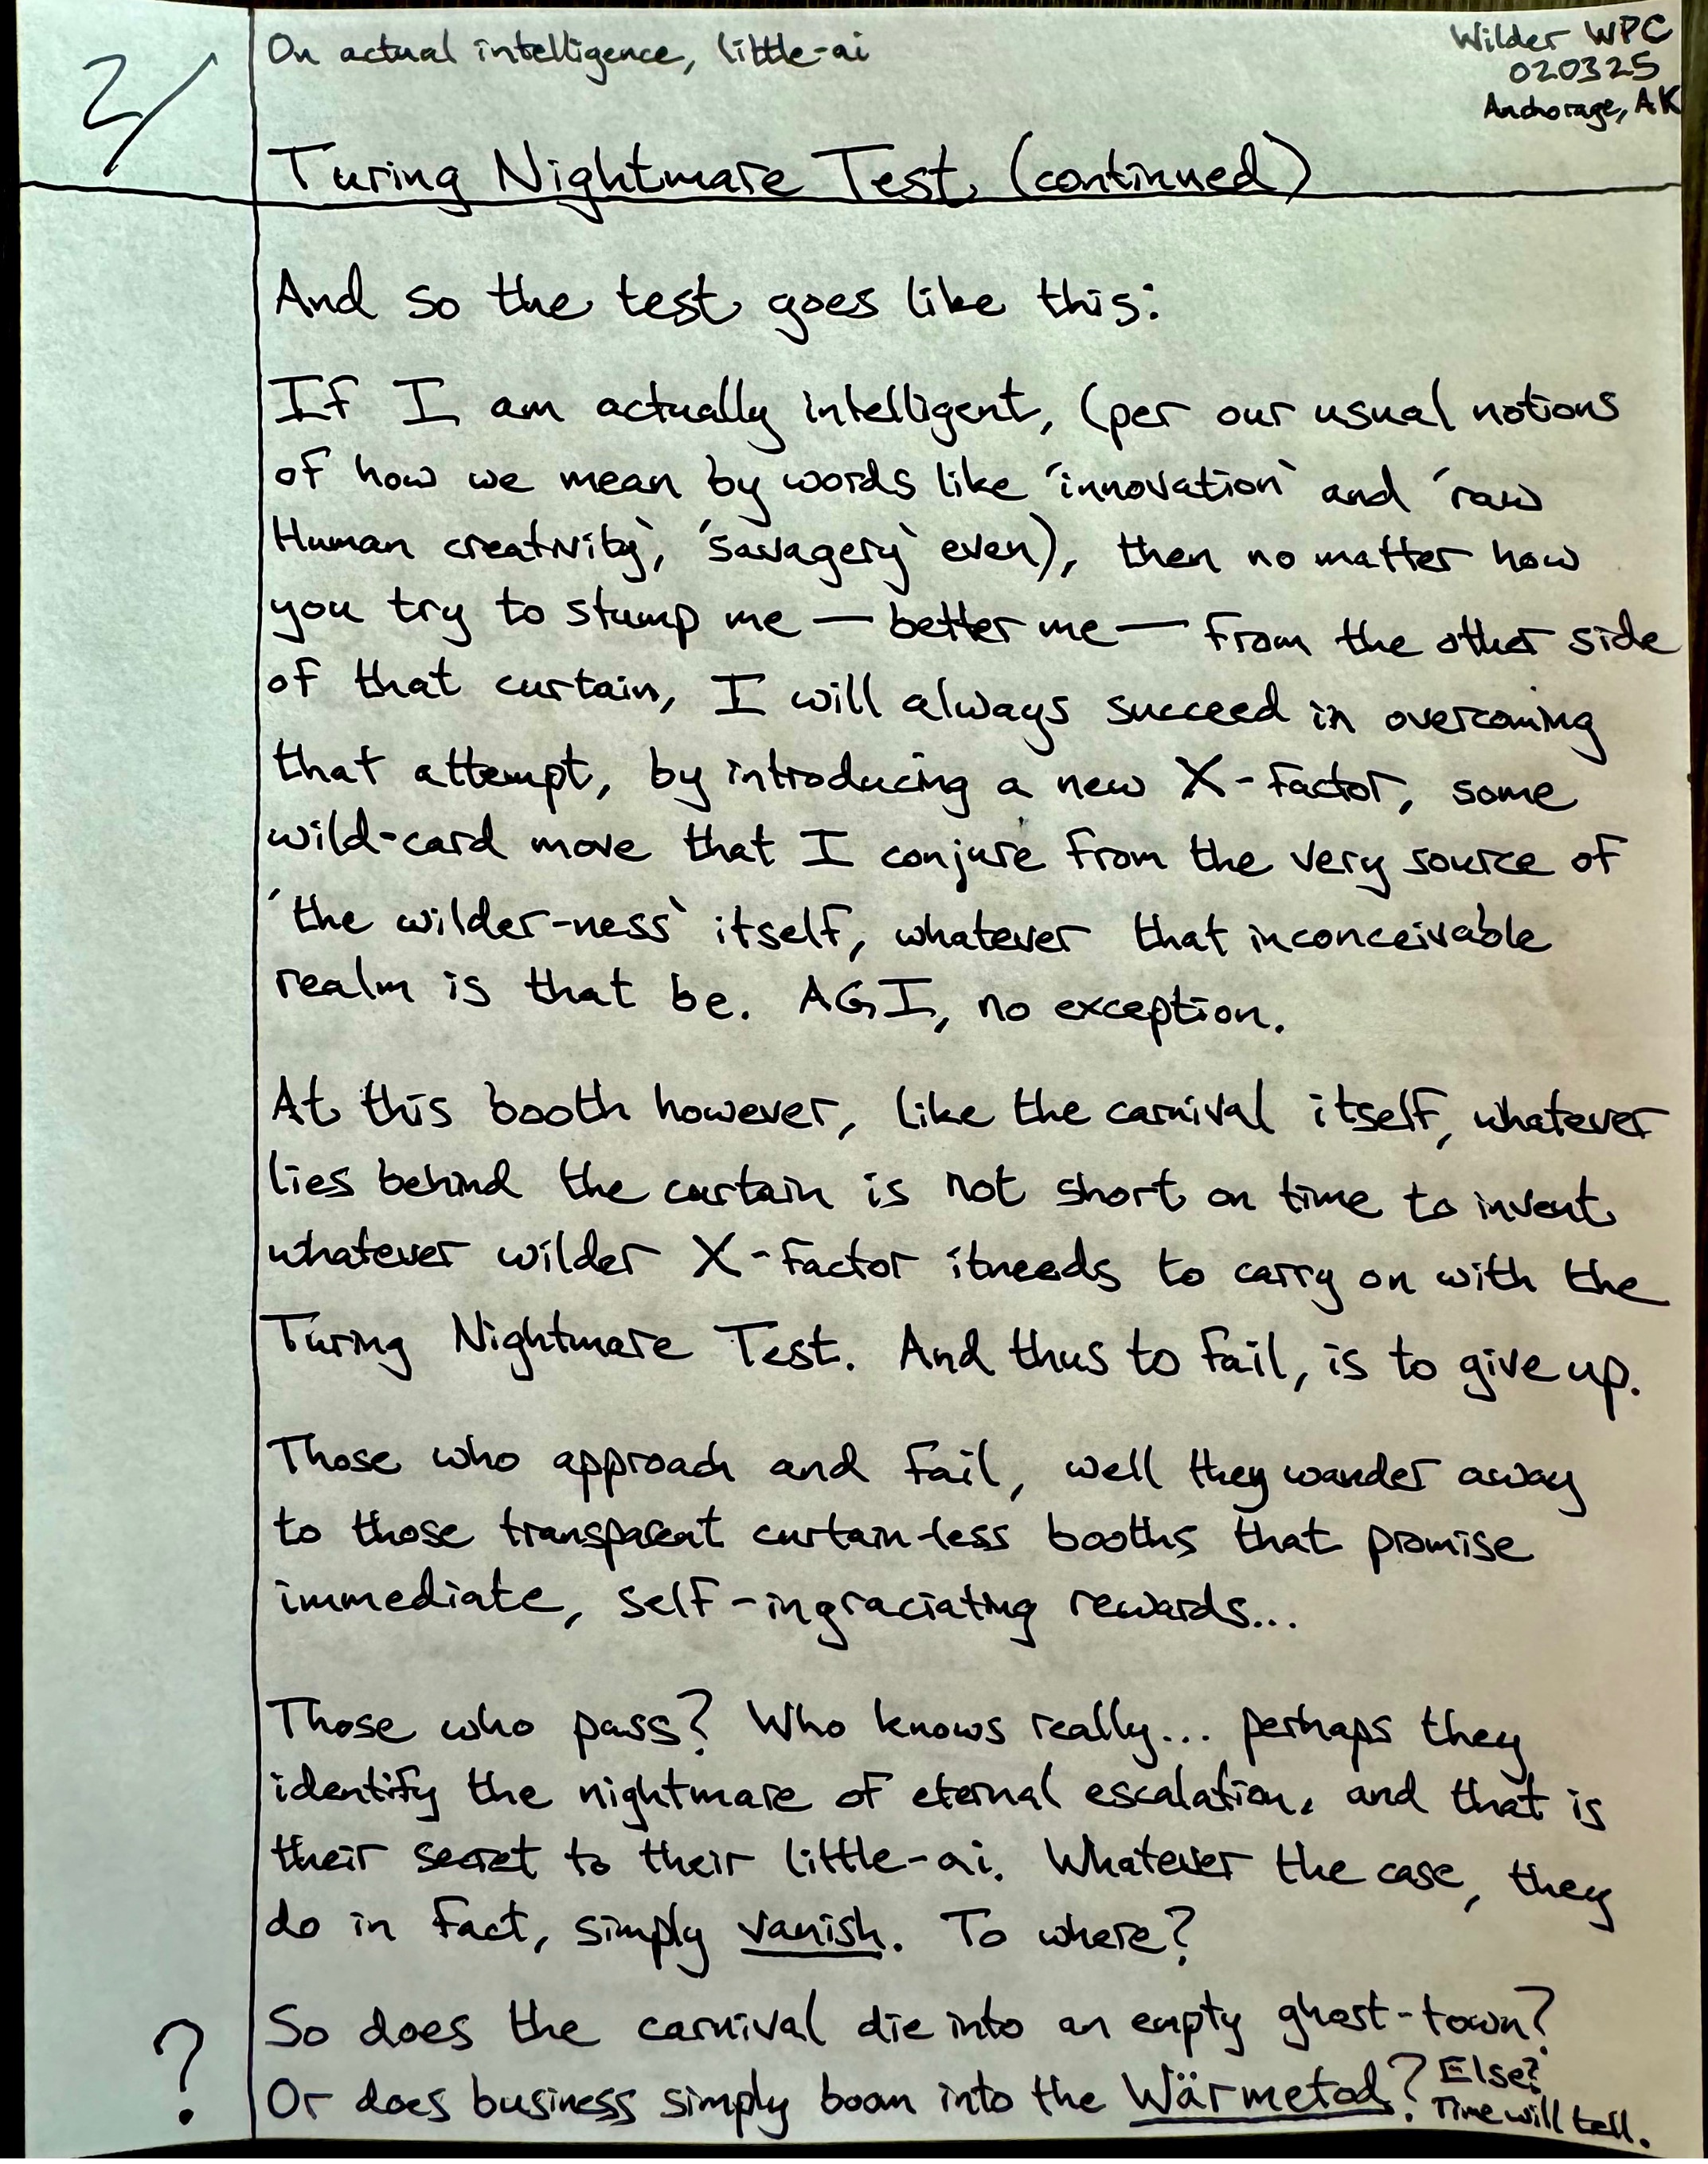 2/
On actual intelligence, little-ai
Wilder WPC
020325
Anchorage, AK
Turing Nightmare Test (continued)
And so the test goes like this:
If I am actually intelligent, (per our usual notions
of how we mean by words like ´innovation` and ´raw
Human creativity`, ´savagery` even), then no matter how
you try to stump me — better me — from the other side
of that curtain, I will always succeed in overcoming
that attempt, by introducing a new X-factor, some
wild-card move that I conjure from the very source of
´the wilder-ness` itself, whatever that inconceivable
realm is that be. AGI, no exception.
At this booth however, like the carnival itself, whatever
lies behind the curtain is not short on time to invent
whatever wilder X-factor itneeds to carry on with the
Turing Nightmare Test. And thus to fail, is to give up.
Those who approach and fail, well they wander away
to those transparent curtain-less booths that promise
immediate, self-ingraciating rewards...
Those who pass? Who knows really... perhaps they
identify the nightmare of eternal escalation, and that is
their secret to their little-ai. Whatever the case, they
do in fact, simply vanish. To where?
So does the carnival die into an empty ghost-town?
? Or does business simply boom into the Wärmetod? Else?
Time will tell.